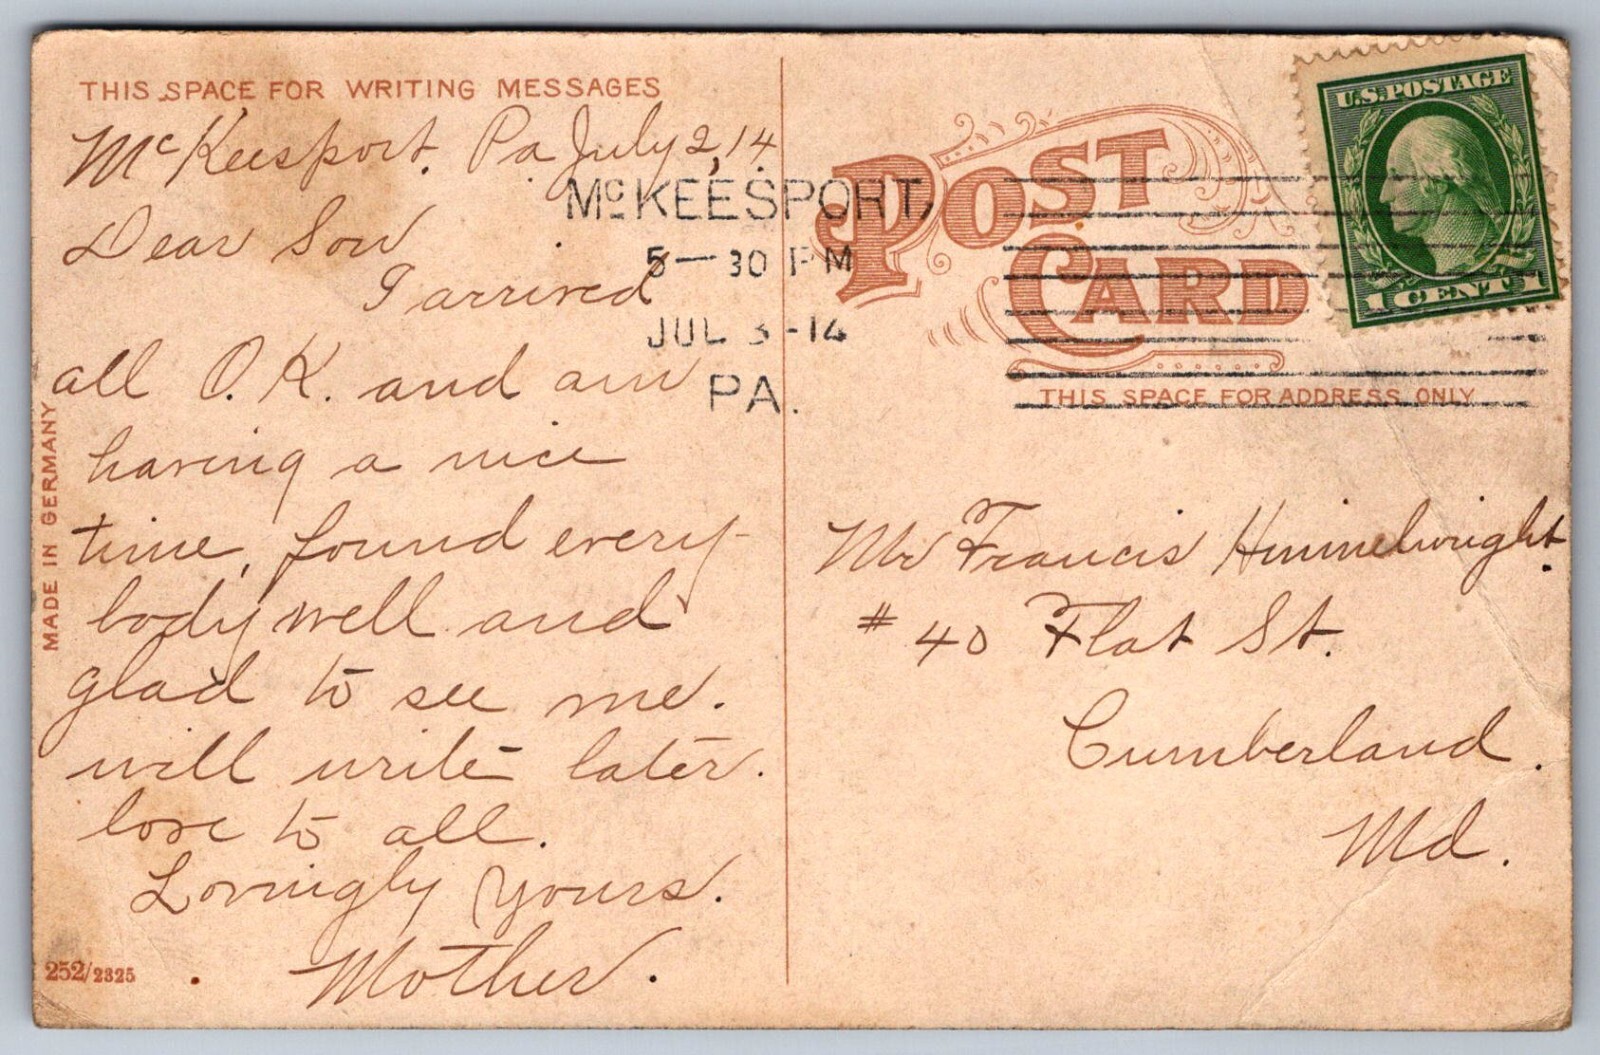 THIS SPACE FOR WRITING MESSAGES
McKeesport. Pa July 2, 14.
Dear Son
I arrived
all O.K. and am
having a nice
time, found every-
body well and
glad to see me.
will write later.
love to all.
Lovingly yours.
Mother.
MADE IN GERMANY
252/2325
McKEESPORT,
5-30 PM
JUL 3-14
PA.
POST
CARD
THIS SPACE FOR ADDRESS ONLY
U.S. POSTAGE
1 CENT 1
Mr Francis Himmelwright.
# 40 Flat St.
Cumberland.
Md.